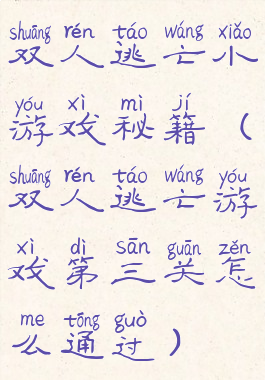 shuāng rén táo wáng xiǎo
双人逃亡小
yóu xì mì jí
游戏秘籍(
shuāng rén táo wáng yóu
双人逃亡游
xì dì sān guān zěn
戏第三关怎
me tōng guò
么通过)